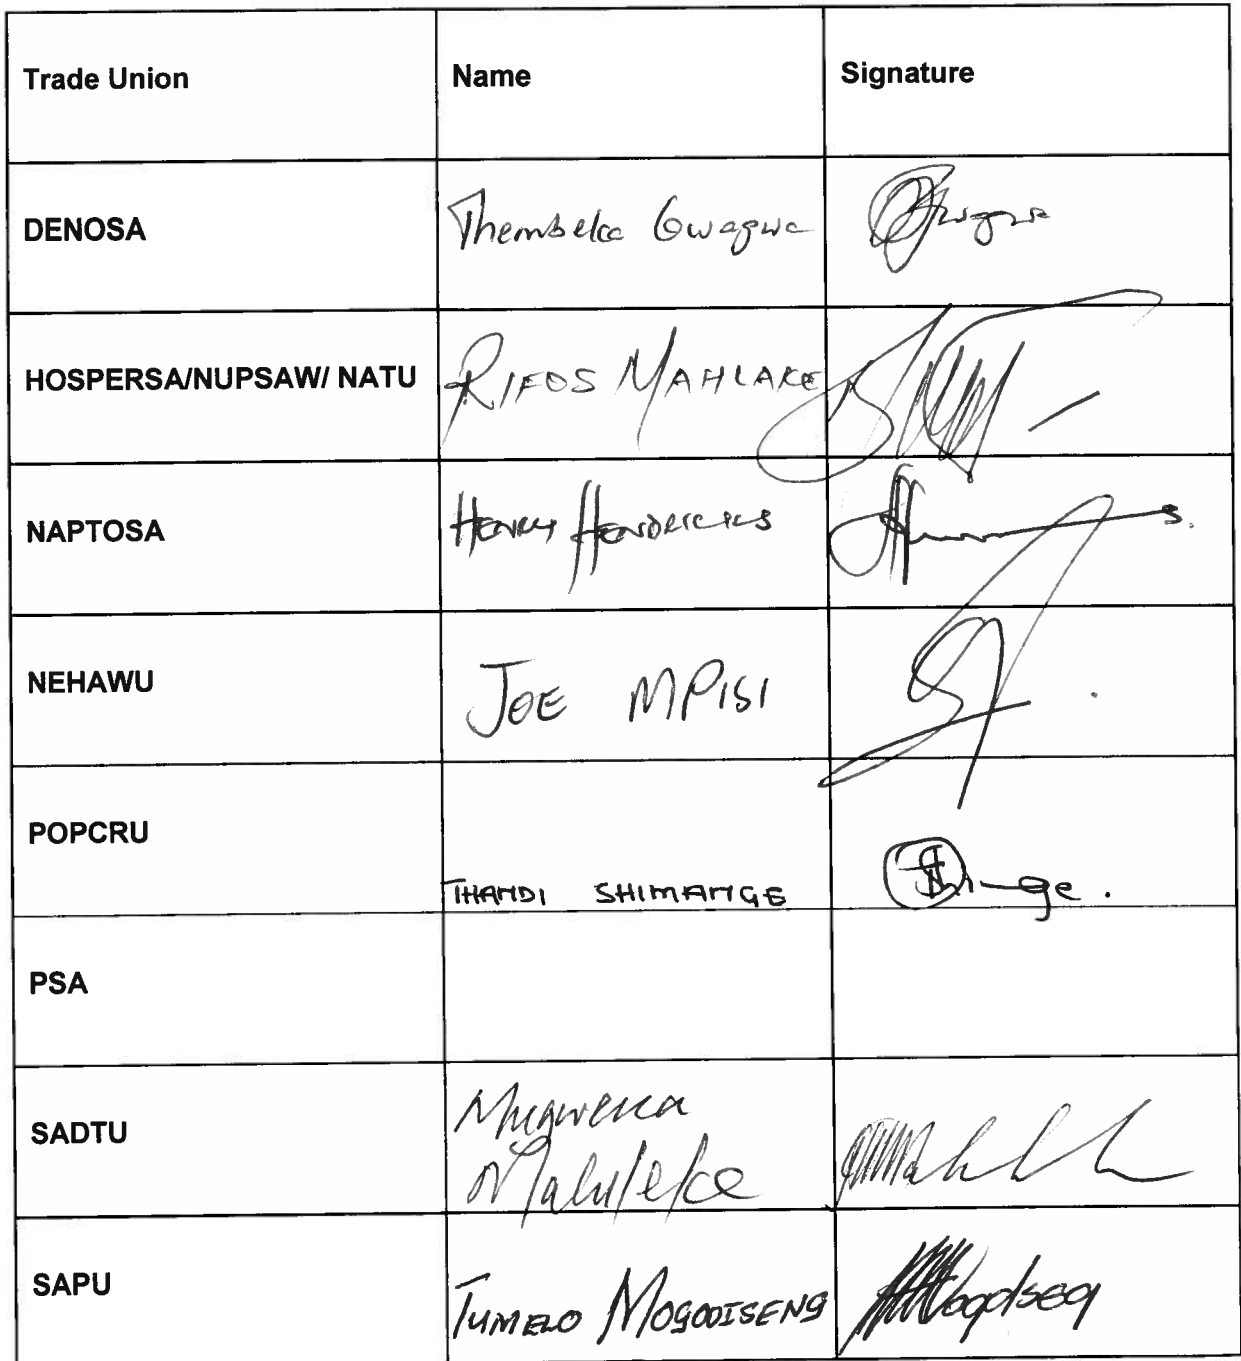 Trade Union Name Signature
DENOSA Thembeka Gwagwa
HOSPERSA/NUPSAW/ NATU RIFOS MAHLAKE
NAPTOSA Henry Hendricks
NEHAWU JOE MPISI
POPCRU
THANDI SHIMANGE
PSA
SADTU Mugwena
Maluleke
SAPU TUMELO MOGODISENG